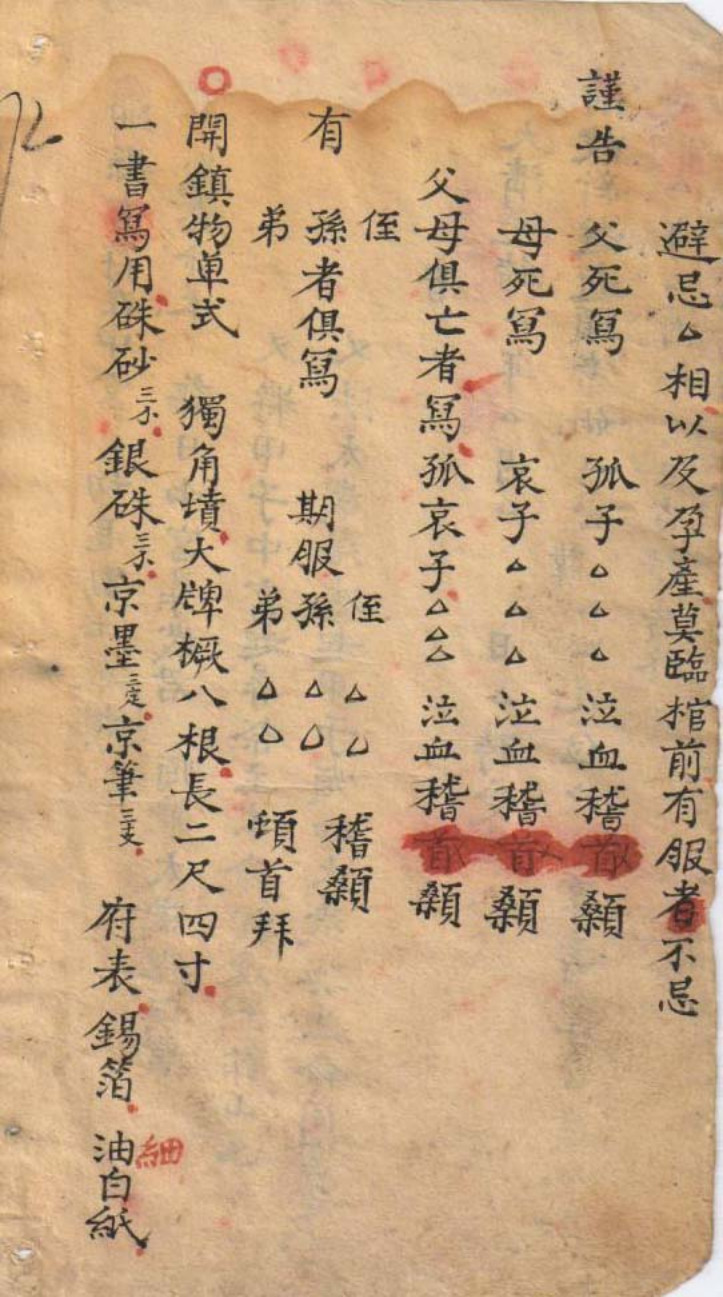 避忌△相以及孕產莫臨棺前有服者不忌
謹告
父死寫 孤子△△△泣血稽首顙
母死寫 哀子△△△泣血稽首顙
父母俱亡者寫孤哀子△△△泣血稽首顙
侄 侄△△
有 孫者俱寫 期服孫△△ 稽顙
弟 弟△△ 頓首拜
開鎮物单式 獨角墳大牌橛八根長二尺四寸
一書寫用硃砂 銀硃 京墨三定京筆三支 府表 錫箔 油細白紙